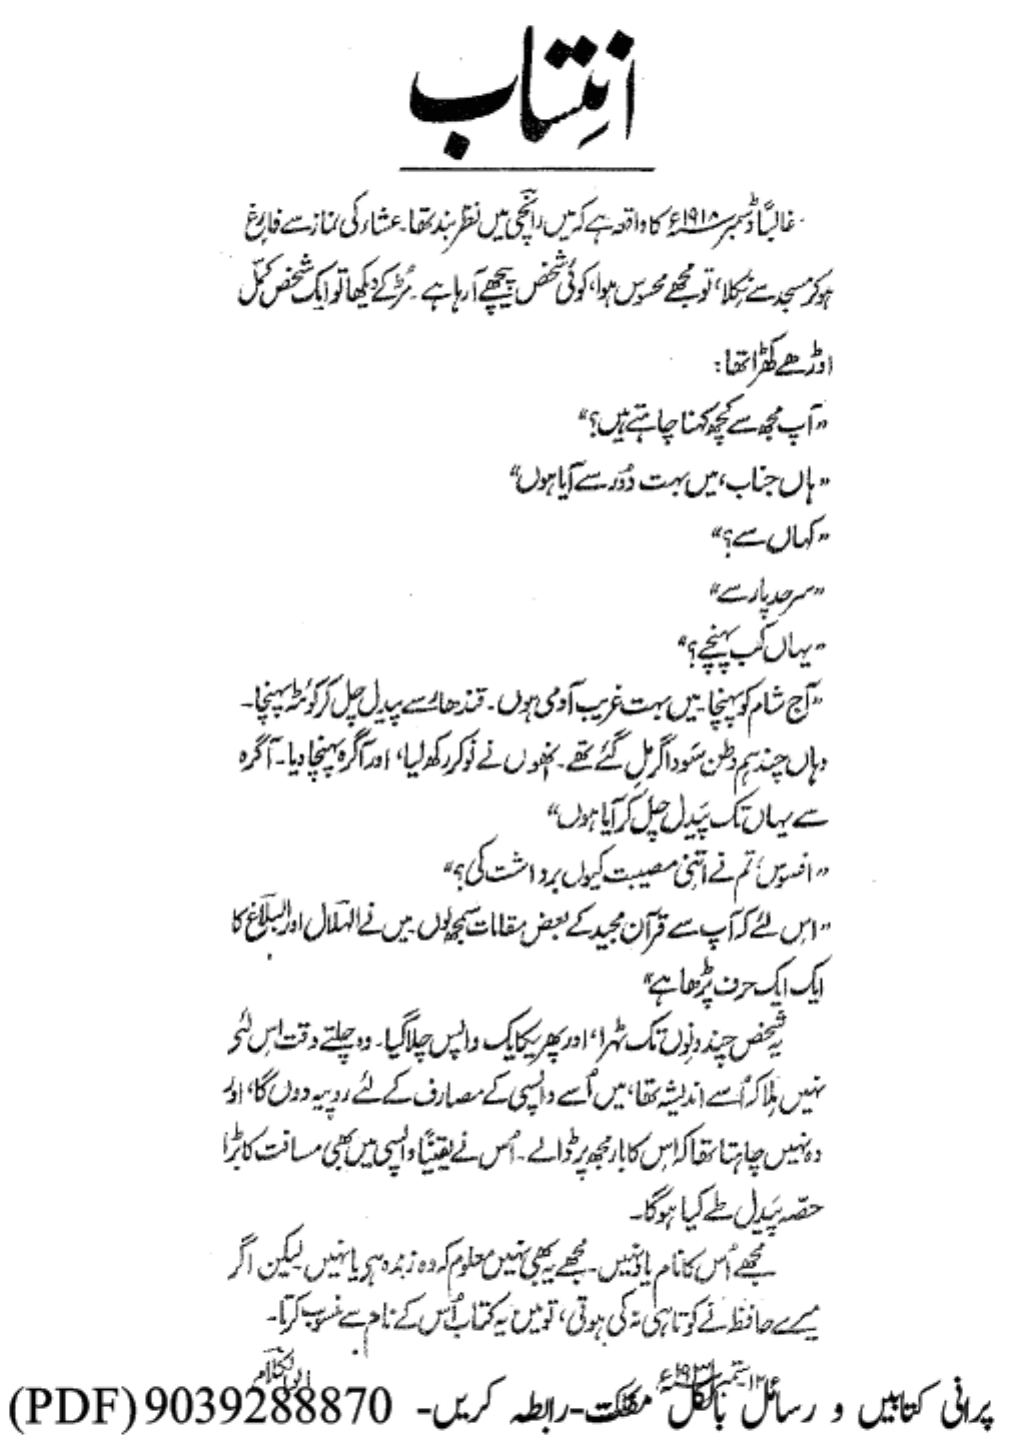 انتساب
غالباً دسمبر ۱۹۱۸ء کا واقعہ ہے کہ میں رانچی میں نظر بند تھا۔ عشاء کی نماز سے فارغ
ہو کر مسجد سے نکلا، تو مجھے محسوس ہوا، کوئی شخص پیچھے آ رہا ہے۔ مُڑ کے دیکھا تو ایک شخص کمبل
اوڑھے کھڑا تھا:
”آپ مجھ سے کچھ کہنا چاہتے ہیں؟“
”ہاں جناب، میں بہت دُور سے آیا ہوں“
”کہاں سے؟“
”سرحد پار سے“
”یہاں کب پہنچے؟“
”آج شام کو پہنچا۔ میں بہت غریب آدمی ہوں۔ قندھار سے پیدل چل کر کوئٹہ پہنچا۔
وہاں چند ہم وطن سوداگر مل گئے تھے۔ انھوں نے نوکر رکھ لیا، اور آگرہ پہنچا دیا۔ آگرہ
سے یہاں تک پَیدل چل کر آیا ہوں“
”افسوس، تم نے اتنی مصیبت کیوں برداشت کی؟“
”اس لئے کہ آپ سے قرآن مجید کے بعض مقامات سمجھ لوں۔ میں نے الہلال اور البلاغ کا
ایک ایک حرف پڑھا ہے“
یہ شخص چند دنوں تک ٹھہرا، اور پھر یکایک واپس چلا گیا۔ وہ چلتے وقت اس لئے
نہیں ملا کہ اُسے اندیشہ تھا، میں اُسے واپسی کے مصارف کے لئے روپیہ دوں گا، اور
وہ نہیں چاہتا تھا کہ اس کا بار مجھ پر ڈالے۔ اُس نے یقیناً واپسی میں بھی مسافت کا بڑا
حصّہ پَیدل طے کیا ہوگا۔
مجھے اُس کا نام یاد نہیں۔ مجھے یہ بھی نہیں معلوم کہ وہ زندہ ہے یا نہیں لیکن اگر
میرے حافظہ نے کوتاہی نہ کی ہوتی، تو میں یہ کتاب اُس کے نام سے منسوب کرتا۔
ابوالکلام
۱۲ ستمبر ۱۹۳۱ء
پرانی کتابیں و رسائل بالکل مفت-رابطہ کریں- 9039288870 (PDF)